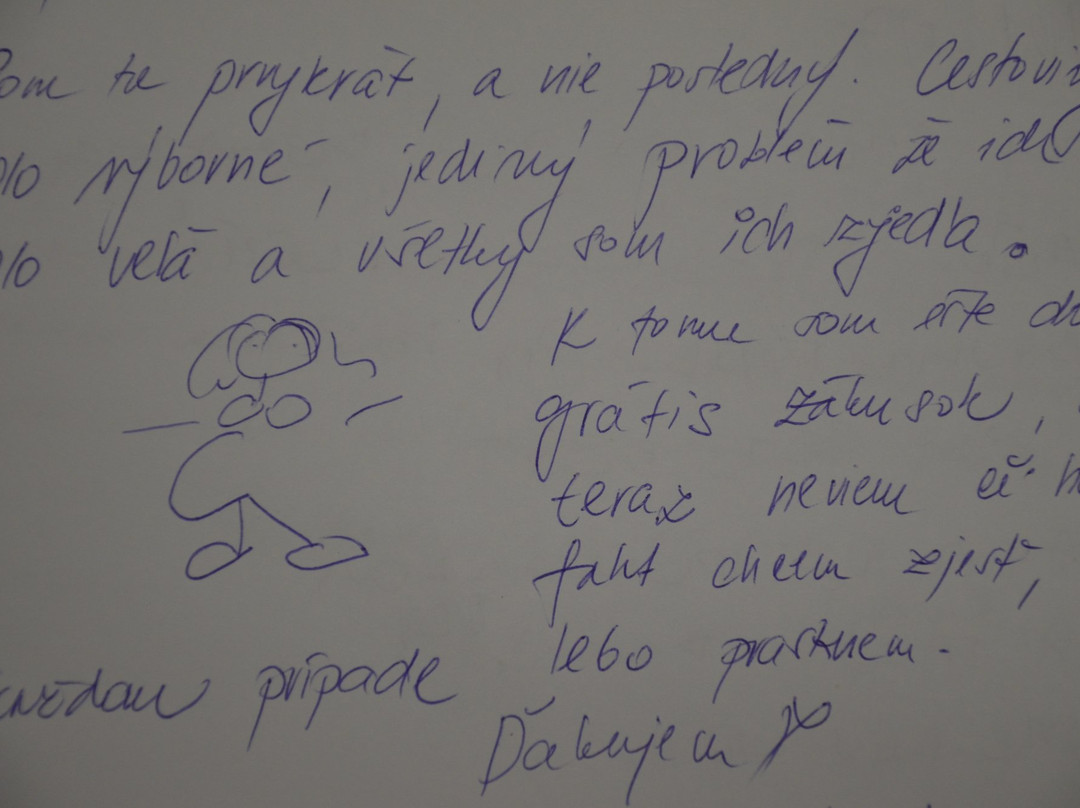 som tu prvykrát, a nie posledný. Cestovi
olo výborné, jediný problém že ich
olo veľa a všetky som ich zjedla.
K tomu som ešte
grátis zákusok,
teraz neviem či
fakt chcem zjesť,
lebo prasknem.
každom prípade
Ďakujem